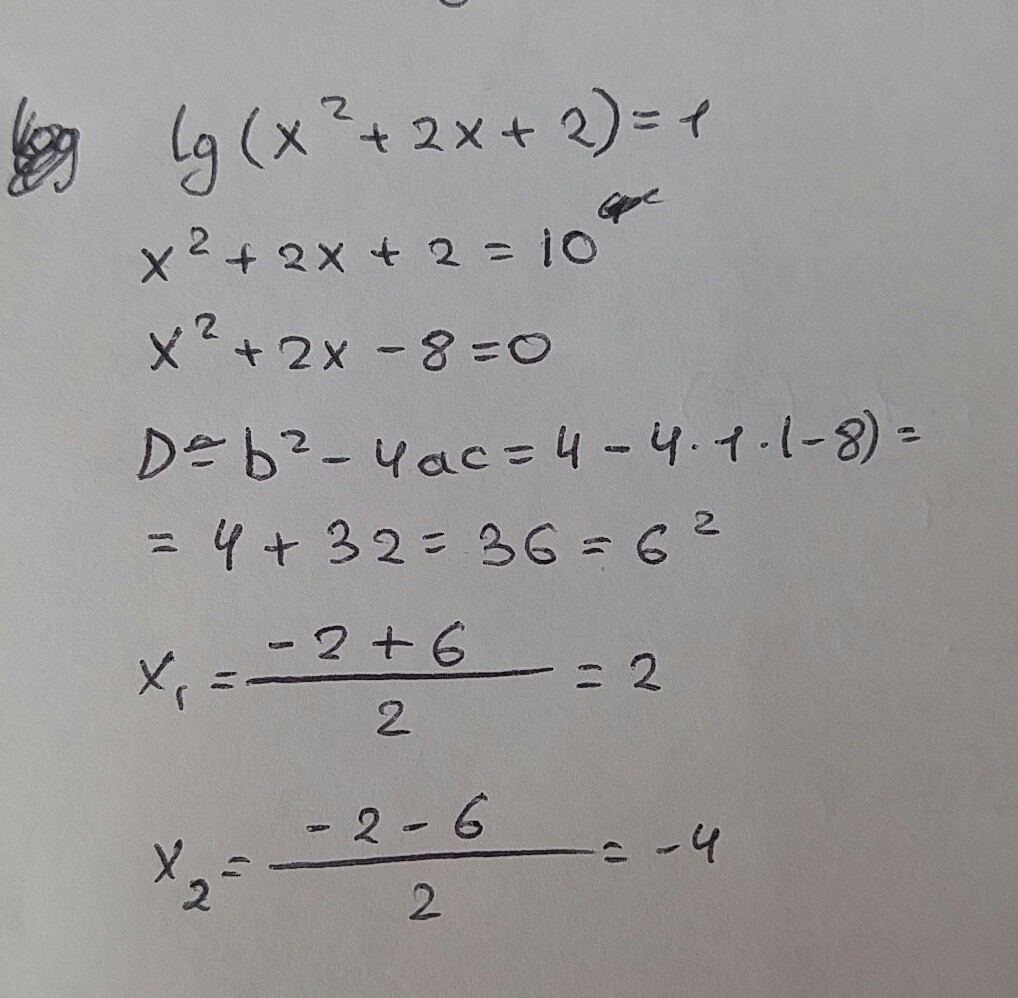 lg (x² + 2x + 2) = 1
x² + 2x + 2 = 10
x² + 2x - 8 = 0
D = b² - 4ac = 4 - 4 · 1 · (-8) =
= 4 + 32 = 36 = 6²
x₁ = (-2 + 6) / 2 = 2
x₂ = (-2 - 6) / 2 = -4